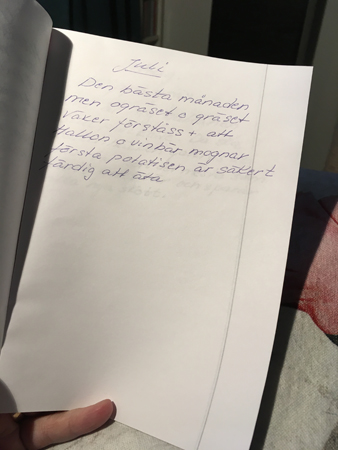 Juli
Den bästa månaden
men ogräset o gräset
växer förståss + att
Hallon o vinbär mognar
första potatisen är säkert
färdig att äta